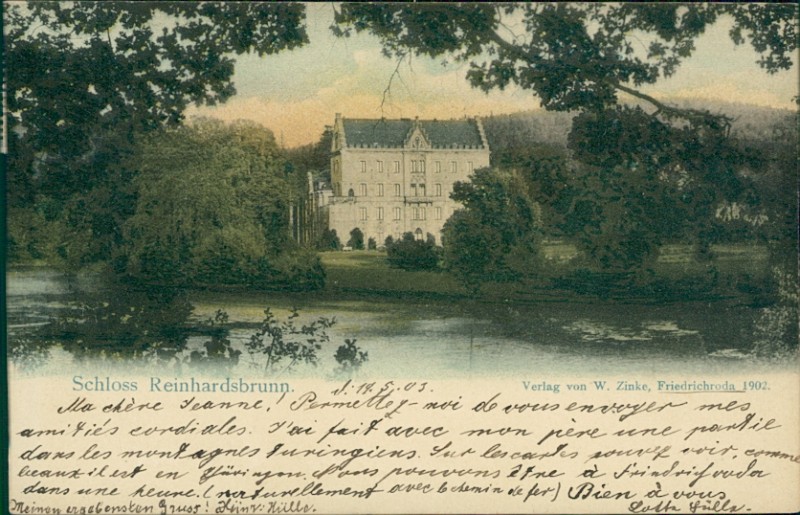 Schloss Reinhardsbrunn.
d. 14. 5. 03.
Verlag von W. Zinke, Friedrichroda 1902.
Ma chère Jeanne! Permettez-moi de vous envoyer mes
amitiés cordiales. J'ai fait avec mon père une partie
dans les montagnes turingiens. Sur les cartes pouvez voir, comme
beaux il est en Türingen. Nous pouvons être à Friedrichroda
dans une heure. (naturellement avec le chemin de fer) Bien à vous
Meinen ergebensten Gruss! Heinr. Hülle.
Lotte Hülle.